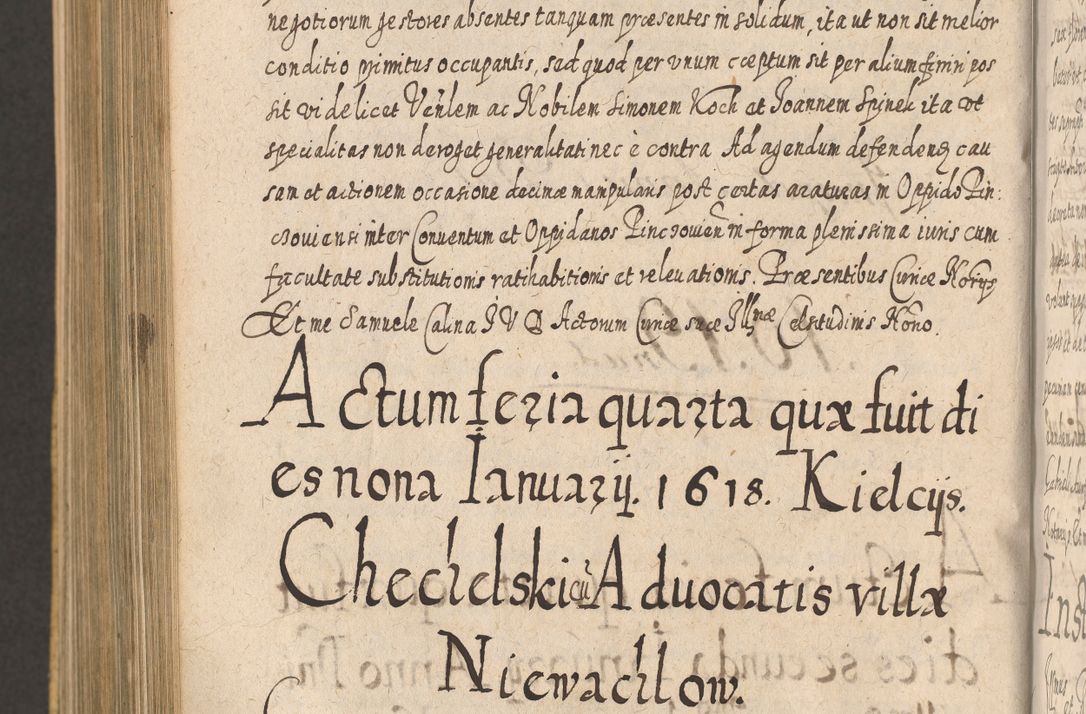 negotiorum gestores absentes tanquam præsentes in solidum, ita ut non sit melior
conditio primitus occupantis, sed quod per vnum cæptum sit per alium finiri pos
sit videlicet Venlem ac Nobilem Simonem Koch et Joannem Spinek ita vt
specialitas non deroget generalitati nec è contra Ad agendum defendendq cau
sam et actionem occasione decimæ manipularis post certas araturas in Oppido Pin:
czouiensi inter Conuentum et Oppidanos Pinczouien in forma plenissima iuris cum
facultate substitutionis ratihabitionis et releuationis. Præsentibus Curiæ Norijs
Et me Samuele Calina J V D Actorum Curiæ suæ Illmæ Celsitudinis Norio.
Actum feria quarta quæ fuit di
es nona Ianuarij. 1618. Kielcijs.
Chechelski cũ Aduocatis villæ
Niewachlow.